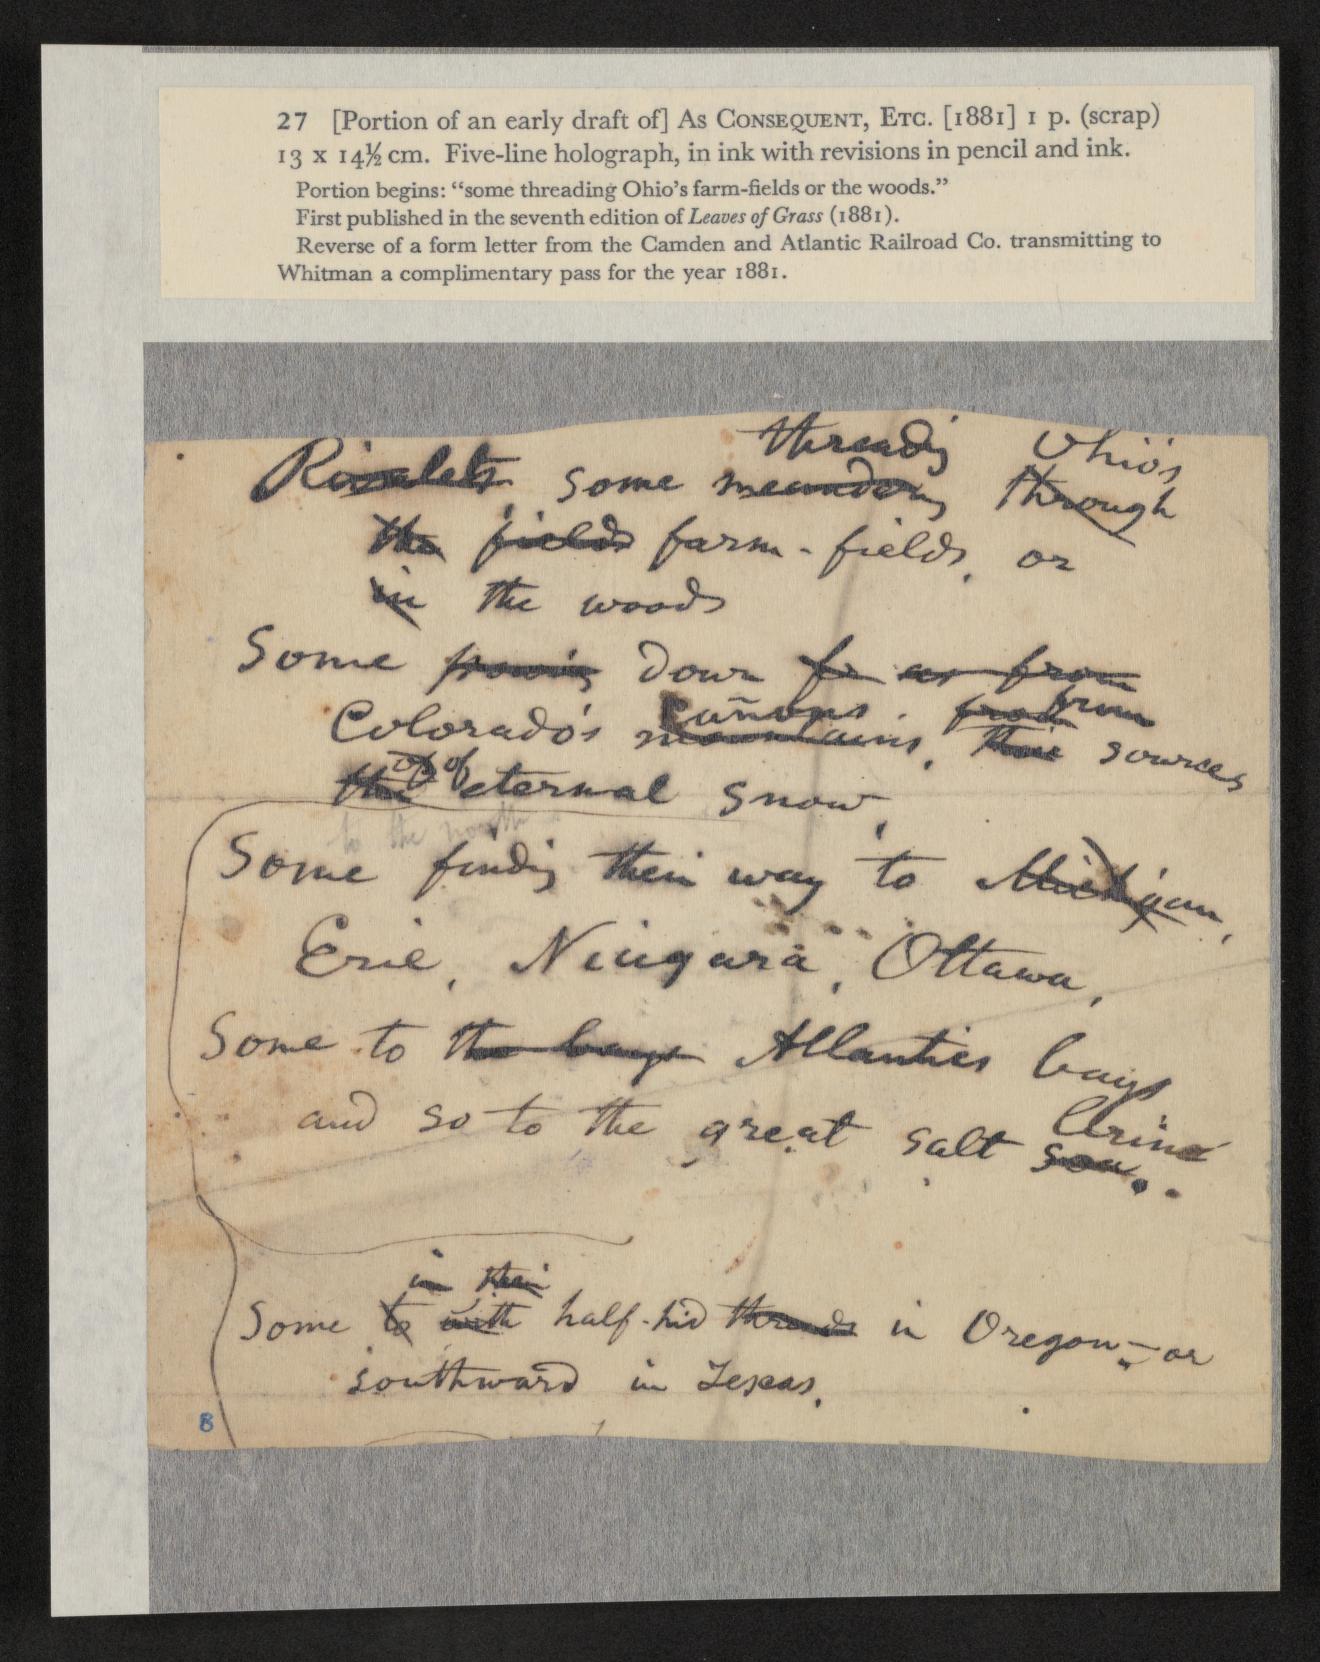 27 [Portion of an early draft of] As Consequent, Etc. [1881] 1 p. (scrap)
13 x 14½ cm. Five-line holograph, in ink with revisions in pencil and ink.
Portion begins: “some threading Ohio’s farm-fields or the woods.”
First published in the seventh edition of Leaves of Grass (1881).
Reverse of a form letter from the Camden and Atlantic Railroad Co. transmitting to
Whitman a complimentary pass for the year 1881.
threading Ohio's
Rivulets, some meandering through
the fields farm-fields, or
in the woods
Some down fr as from
cañons. from from
Colorado's mountains, their sources
of of
the eternal snow,
to the north
Some finding their way to Michigan,
Erie, Niagara, Ottawa,
Some to the bays Atlantics bays
and so to the great salt brine
sea.
in their
Some to with half-hid threads in Oregon,—or
southward in Texas.
8